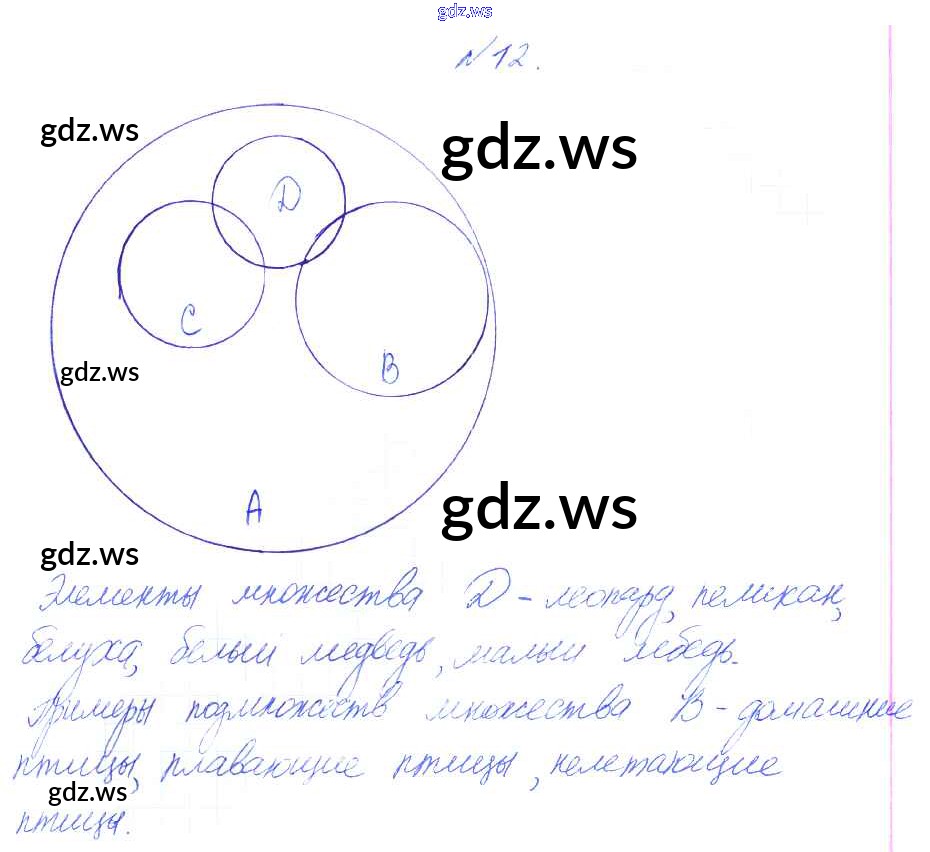 gdz.ws
N 12.
gdz.ws
gdz.ws
D
C
gdz.ws
B
A
gdz.ws
gdz.ws
Элементы множества D - леопард, пеликан,
белуха, белый медведь, малый лебедь.
Примеры подмножеств множества B - домашние
птицы, плавающие птицы, нелетающие
gdz.ws
птицы.